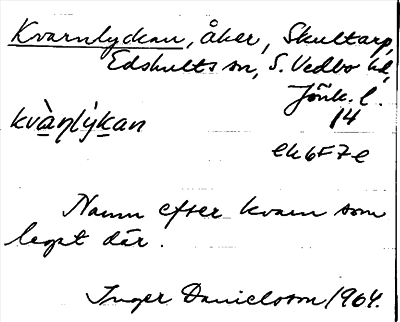 Kvarnlyckan, åker, Skultarp,
Edshults sn, S. Vedbo hd,
Jönk. l.
kvànlýkan 14
ek6F7e
Namn efter kvarn som
legat där.
Inger Danielsson 1964.